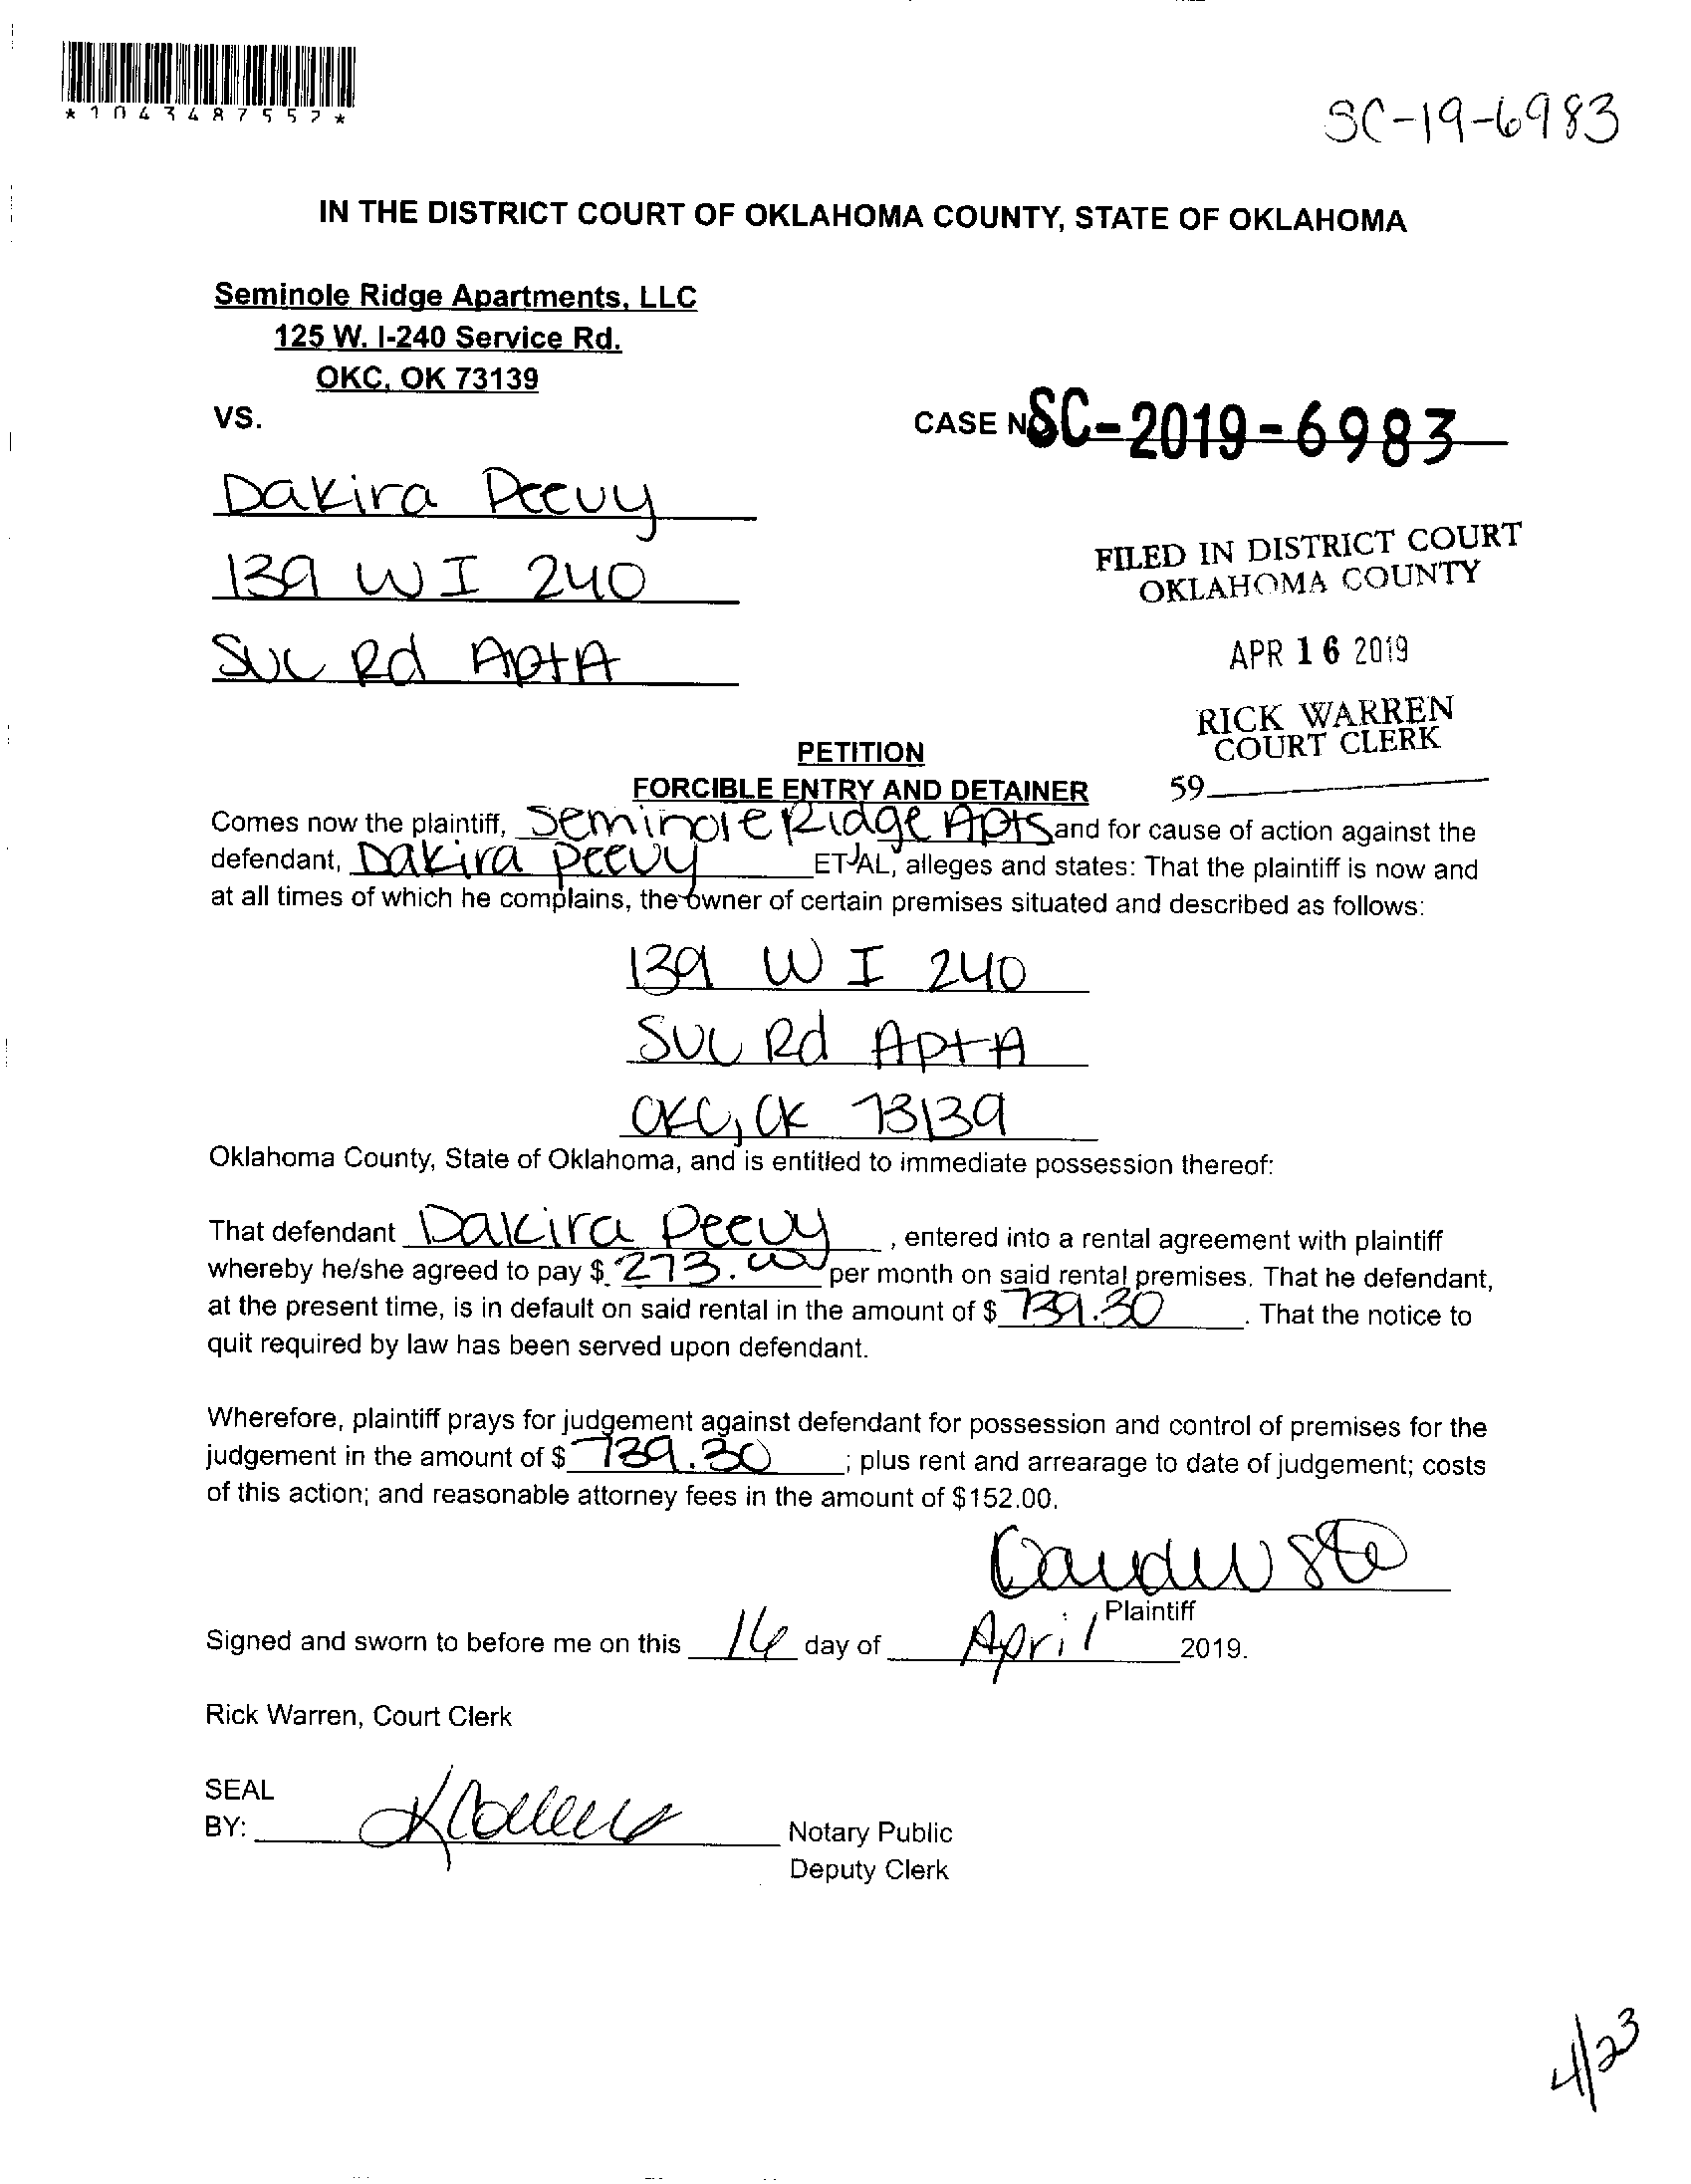 *1043487557*
SC-19-6983
IN THE DISTRICT COURT OF OKLAHOMA COUNTY, STATE OF OKLAHOMA
Seminole Ridge Apartments, LLC
125 W. I-240 Service Rd.
OKC, OK 73139
VS.
CASE NO SC-2019-6983
Dakira Peevy
139 W I 240
SVC Rd Apt A
FILED IN DISTRICT COURT
OKLAHOMA COUNTY
APR 16 2019
RICK WARREN
COURT CLERK
59
PETITION
FORCIBLE ENTRY AND DETAINER
Comes now the plaintiff, Seminole Ridge Apts and for cause of action against the
defendant, Dakira Peevy ET AL, alleges and states: That the plaintiff is now and
at all times of which he complains, the owner of certain premises situated and described as follows:
139 W I 240
SVC Rd Apt A
OKC, OK 73139
Oklahoma County, State of Oklahoma, and is entitled to immediate possession thereof:
That defendant Dakira Peevy, entered into a rental agreement with plaintiff
whereby he/she agreed to pay $ 273.00 per month on said rental premises. That he defendant,
at the present time, is in default on said rental in the amount of $ 739.30. That the notice to
quit required by law has been served upon defendant.
Wherefore, plaintiff prays for judgement against defendant for possession and control of premises for the
judgement in the amount of $ 739.30; plus rent and arrearage to date of judgement; costs
of this action; and reasonable attorney fees in the amount of $152.00.
Plaintiff
Signed and sworn to before me on this 16 day of April 2019.
Rick Warren, Court Clerk
SEAL
BY:
Notary Public
Deputy Clerk
4/23